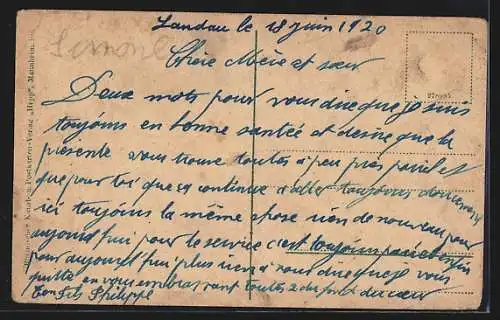 Landau le 18 juin 1920
Chère Mère et sœur
Deux mots pour vous dire que je suis
toujours en bonne santée et desire que la
présente vous trouve toutes à peu près pareil et
que pour toi que ça continue d'aller toujours doucement
ici toujours la même chose rien de nouveau pour
aujourd'hui pour le service c'est toujours pareil
pour aujourd'hui plus rien à vous dire que je vous
quitte en vous embrassant toutes 2 du fond du cœur
ton fils Philippe